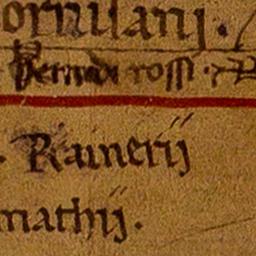 ornisanj.
Bernardi rossi.
Rainerij
mathij.